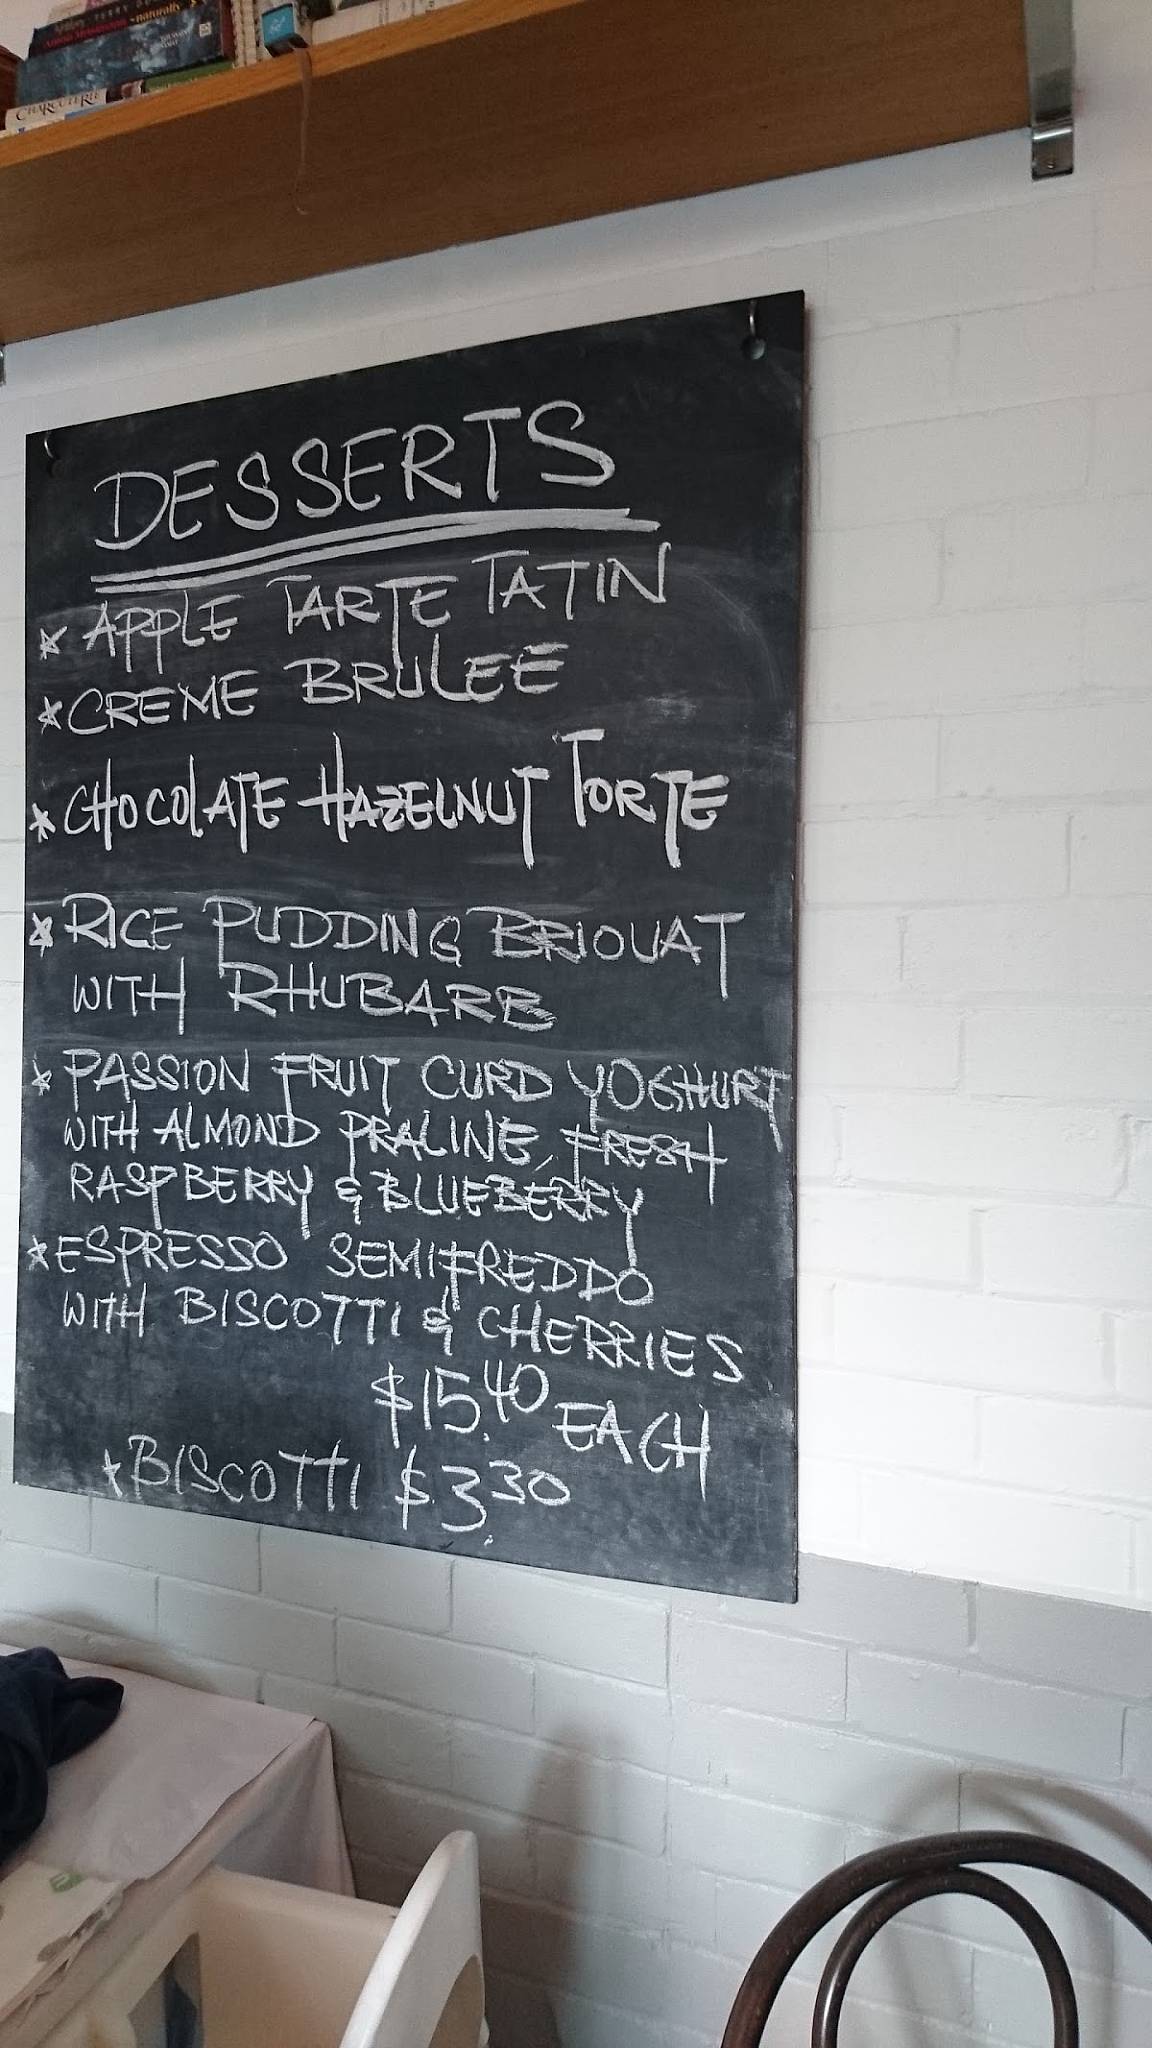 CHARCUTERIE
DESSERTS
* APPLE TARTE TATIN
* CREME BRULEE
* CHOCOLATE HAZELNUT TORTE
* RICE PUDDING BRIOUAT
WITH RHUBARB
* PASSION FRUIT CURD YOGHURT
WITH ALMOND PRALINE, FRESH
RASPBERRY & BLUEBERRY
* ESPRESSO SEMIFREDDO
WITH BISCOTTI & CHERRIES
$15.40 EACH
* BISCOTTI $3.30